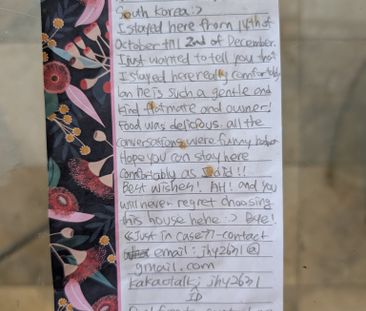 South Korea :>
I stayed here from 14th of
October till 2nd of December.
I just wanted to tell you that
I stayed here really comfortably
he is such a gentle and
kind flatmate and owner!
Food was delicious. all the
conversations were funny
Hope you can stay here
comfortably as I did!!
Best wishes! AH! and you
will never regret choosing
this house hehe :> Bye!
Just in case?! - contact
email : jhy2631@
gmail.com
kakaotalk : jhy2631
ID